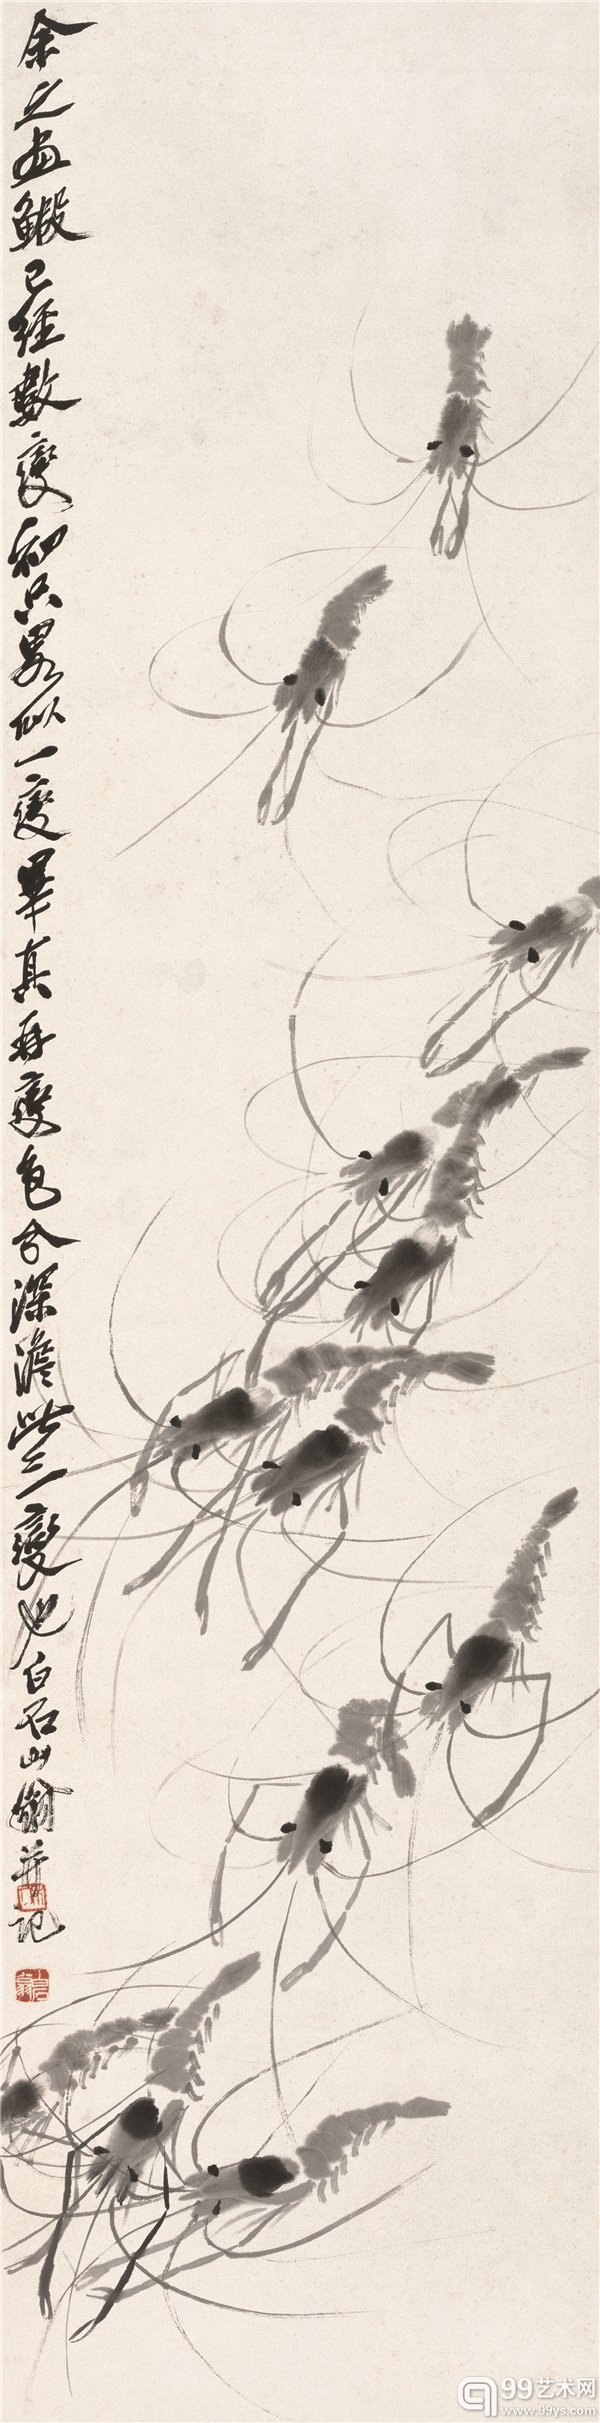 余之画鰕已经数变初只畧似一变毕真再变色分深淡此三变也白石山翁并记
99艺术网
www.99ys.com